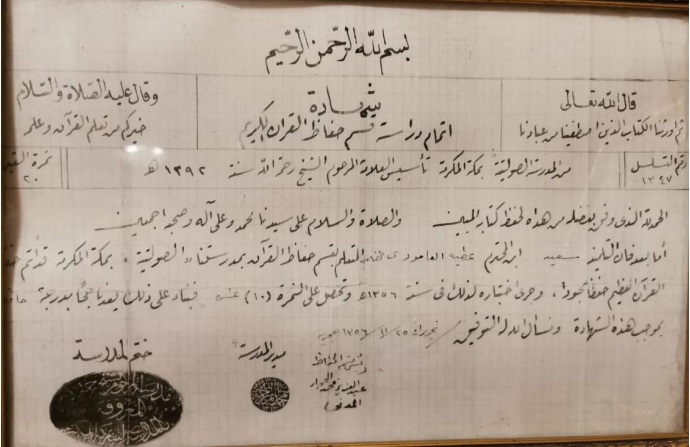 بسم الله الرحمن الرحيم
قال الله تعالى
ثم أورثنا الكتاب الذين اصطفينا من عبادنا
شهادة
اتمام دراسة قسم حفاظ القرآن الكريم
وقال عليه الصلاة والسلام
خيركم من تعلم القرآن وعلمه
رقم التسلسل
١٣٤٧
من المدرسة الصولتية بمكة المكرمة تأسيس العلامة المرحوم الشيخ رحمة الله سنة ١٢٩٢ هـ
نمرة
٢٠
الحمد لله الذي وفق بفضله من هداه لحفظ كتابه المبين والصلاة والسلام على سيدنا محمد وعلى آله وصحبه اجمعين
أما بعد فان التلميذ سعيد ابن المحترم عطيه العامودي المتعلم بقسم حفاظ القرآن بمدرستنا الصولتية بمكة المكرمة قد أتم
القرآن العظيم حفظا مجودا، وجرى اختباره لذلك في سنة ١٣٥٦هـ وتحصل على النمرة (١٠) فبناء على ذلك يعد ناجحا بدرجة
بموجب هذه الشهادة ونسأل الله له التوفيق
مدير المدرسة
ختم المدرسة